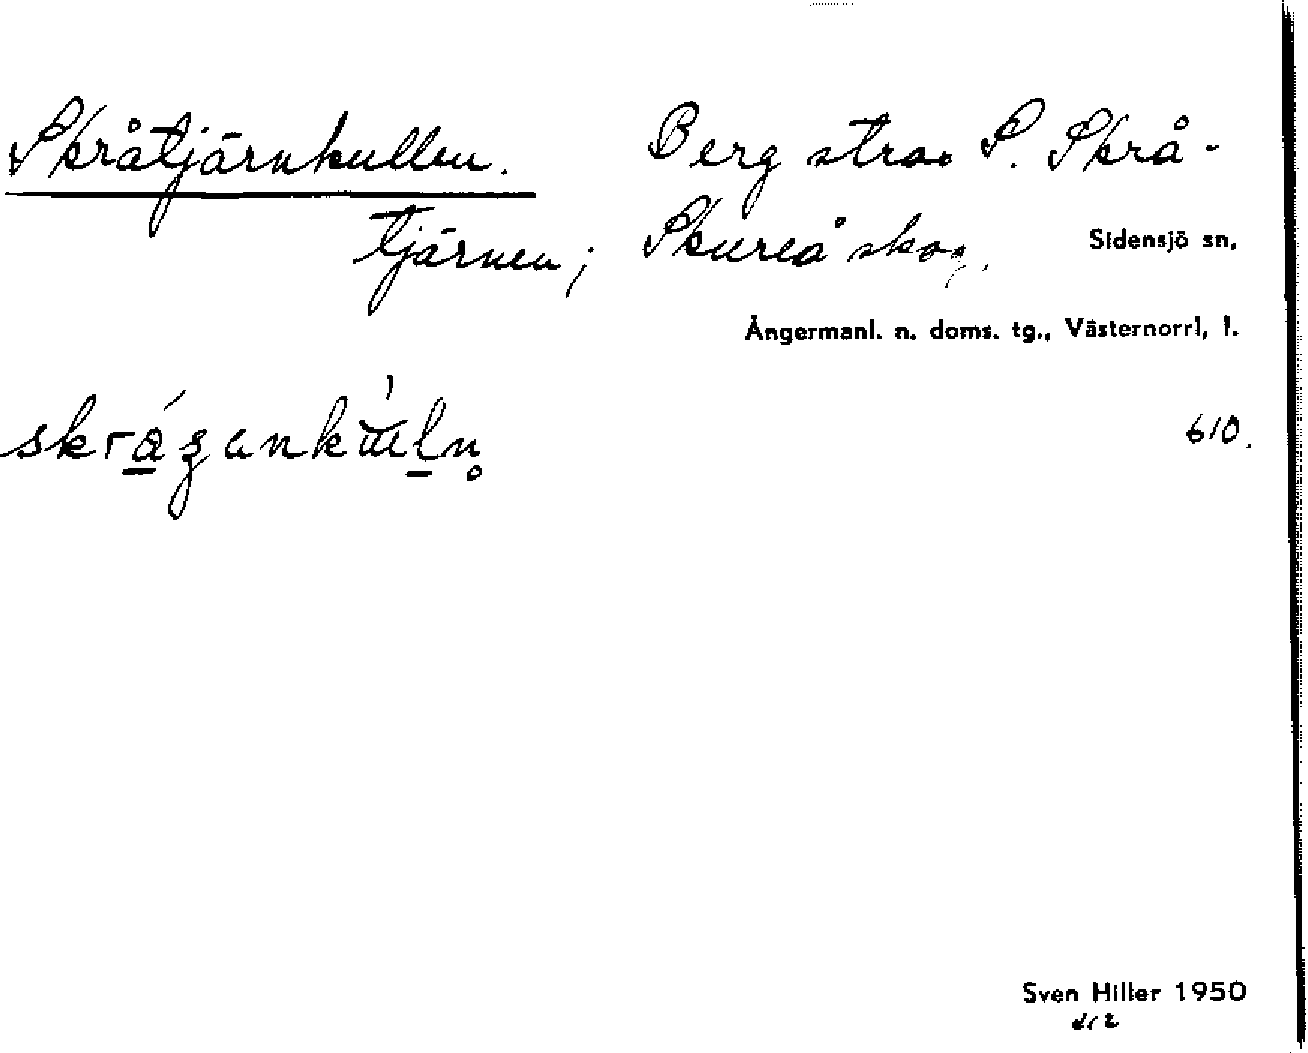 Skråtjärnkullen. Berg strax S. Skrå-
tjärnen; Skureå skog.
Sidensjö sn.
Ångermanl. n. doms. tg., Västernorrl. l.
610.
Sven Hiller 1950